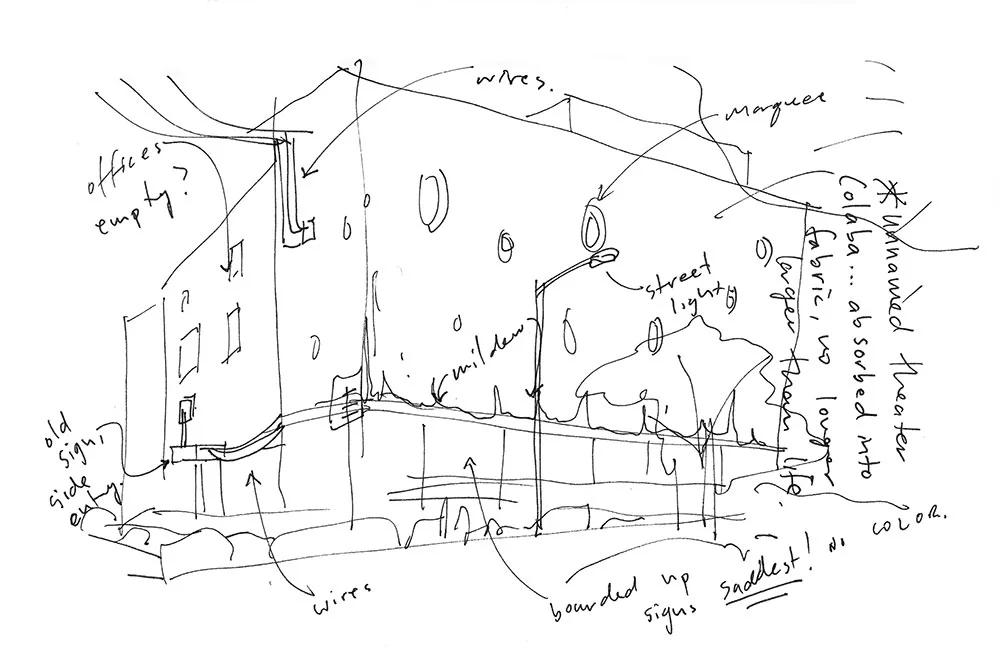 wires.
marquee
offices
empty?
*unnamed theater
Colaba... absorbed into
fabric, no longer
larger than life
street
light
mildew
old
sign,
side
entry.
wires
boarded up
signs
saddest! no color.